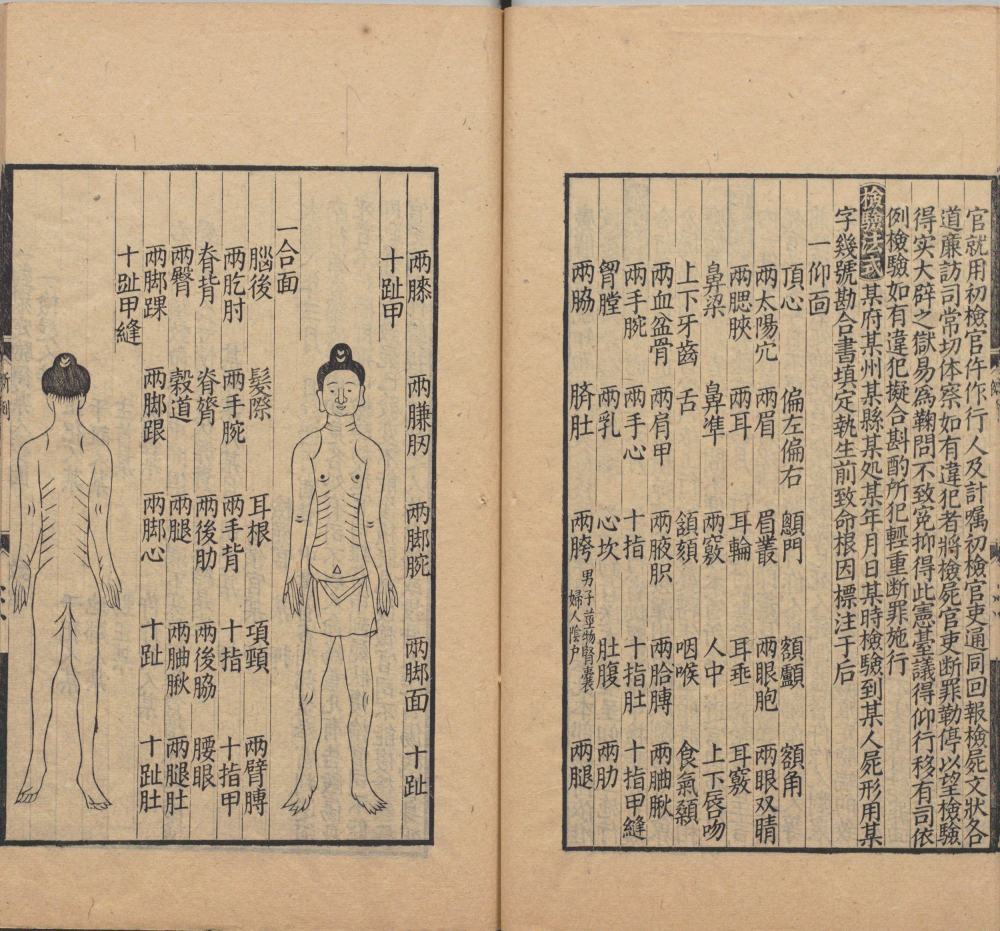 官就用初檢官仵作行人及計囑初檢官吏通同回報檢屍文狀各
道廉訪司常切体察如有違犯者將檢屍官吏断罪勒停以望檢驗
得实大辟之獄易爲鞠問不致冤抑得此憲臺議得仰行移有司依
例檢驗如有違犯擬合斟酌所犯輕重断罪施行
檢驗法式 某府某州某縣某处某年月日某時檢驗到某人屍形用某
字幾號勘合書填定執生前致命根因標注于后
一仰面
頂心 偏左偏右 顖門 額顱 額角
兩太陽穴 兩眉 眉叢 兩眼胞 兩眼双睛
兩腮脥 兩耳 耳輪 耳垂 耳竅
鼻梁 鼻準 兩竅 人中 上下唇吻
上下牙齒 舌 頷頦 咽喉 食氣顙
兩血盆骨 兩肩甲 兩腋胑 兩胎膊 兩䏔脉
兩手腕 兩手心 十指 十指肚 十指甲縫
胷膛 兩乳 心坎 肚腹 兩肋
兩脇 臍肚 兩胯 男子莖物腎囊 婦人陰户 兩腿
兩膝 兩臁肕 兩脚腕 兩脚面 十趾
十趾甲
一合面
腦後 髮際 耳根 項頸 兩臂膊
兩肐肘 兩手腕 兩手背 十指 十指甲
脊背 脊膂 兩後肋 兩後脇 腰眼
兩臀 糓道 兩腿 兩䏔脉 兩腿肚
兩脚踝 兩脚跟 兩脚心 十趾 十趾肚
十趾甲縫